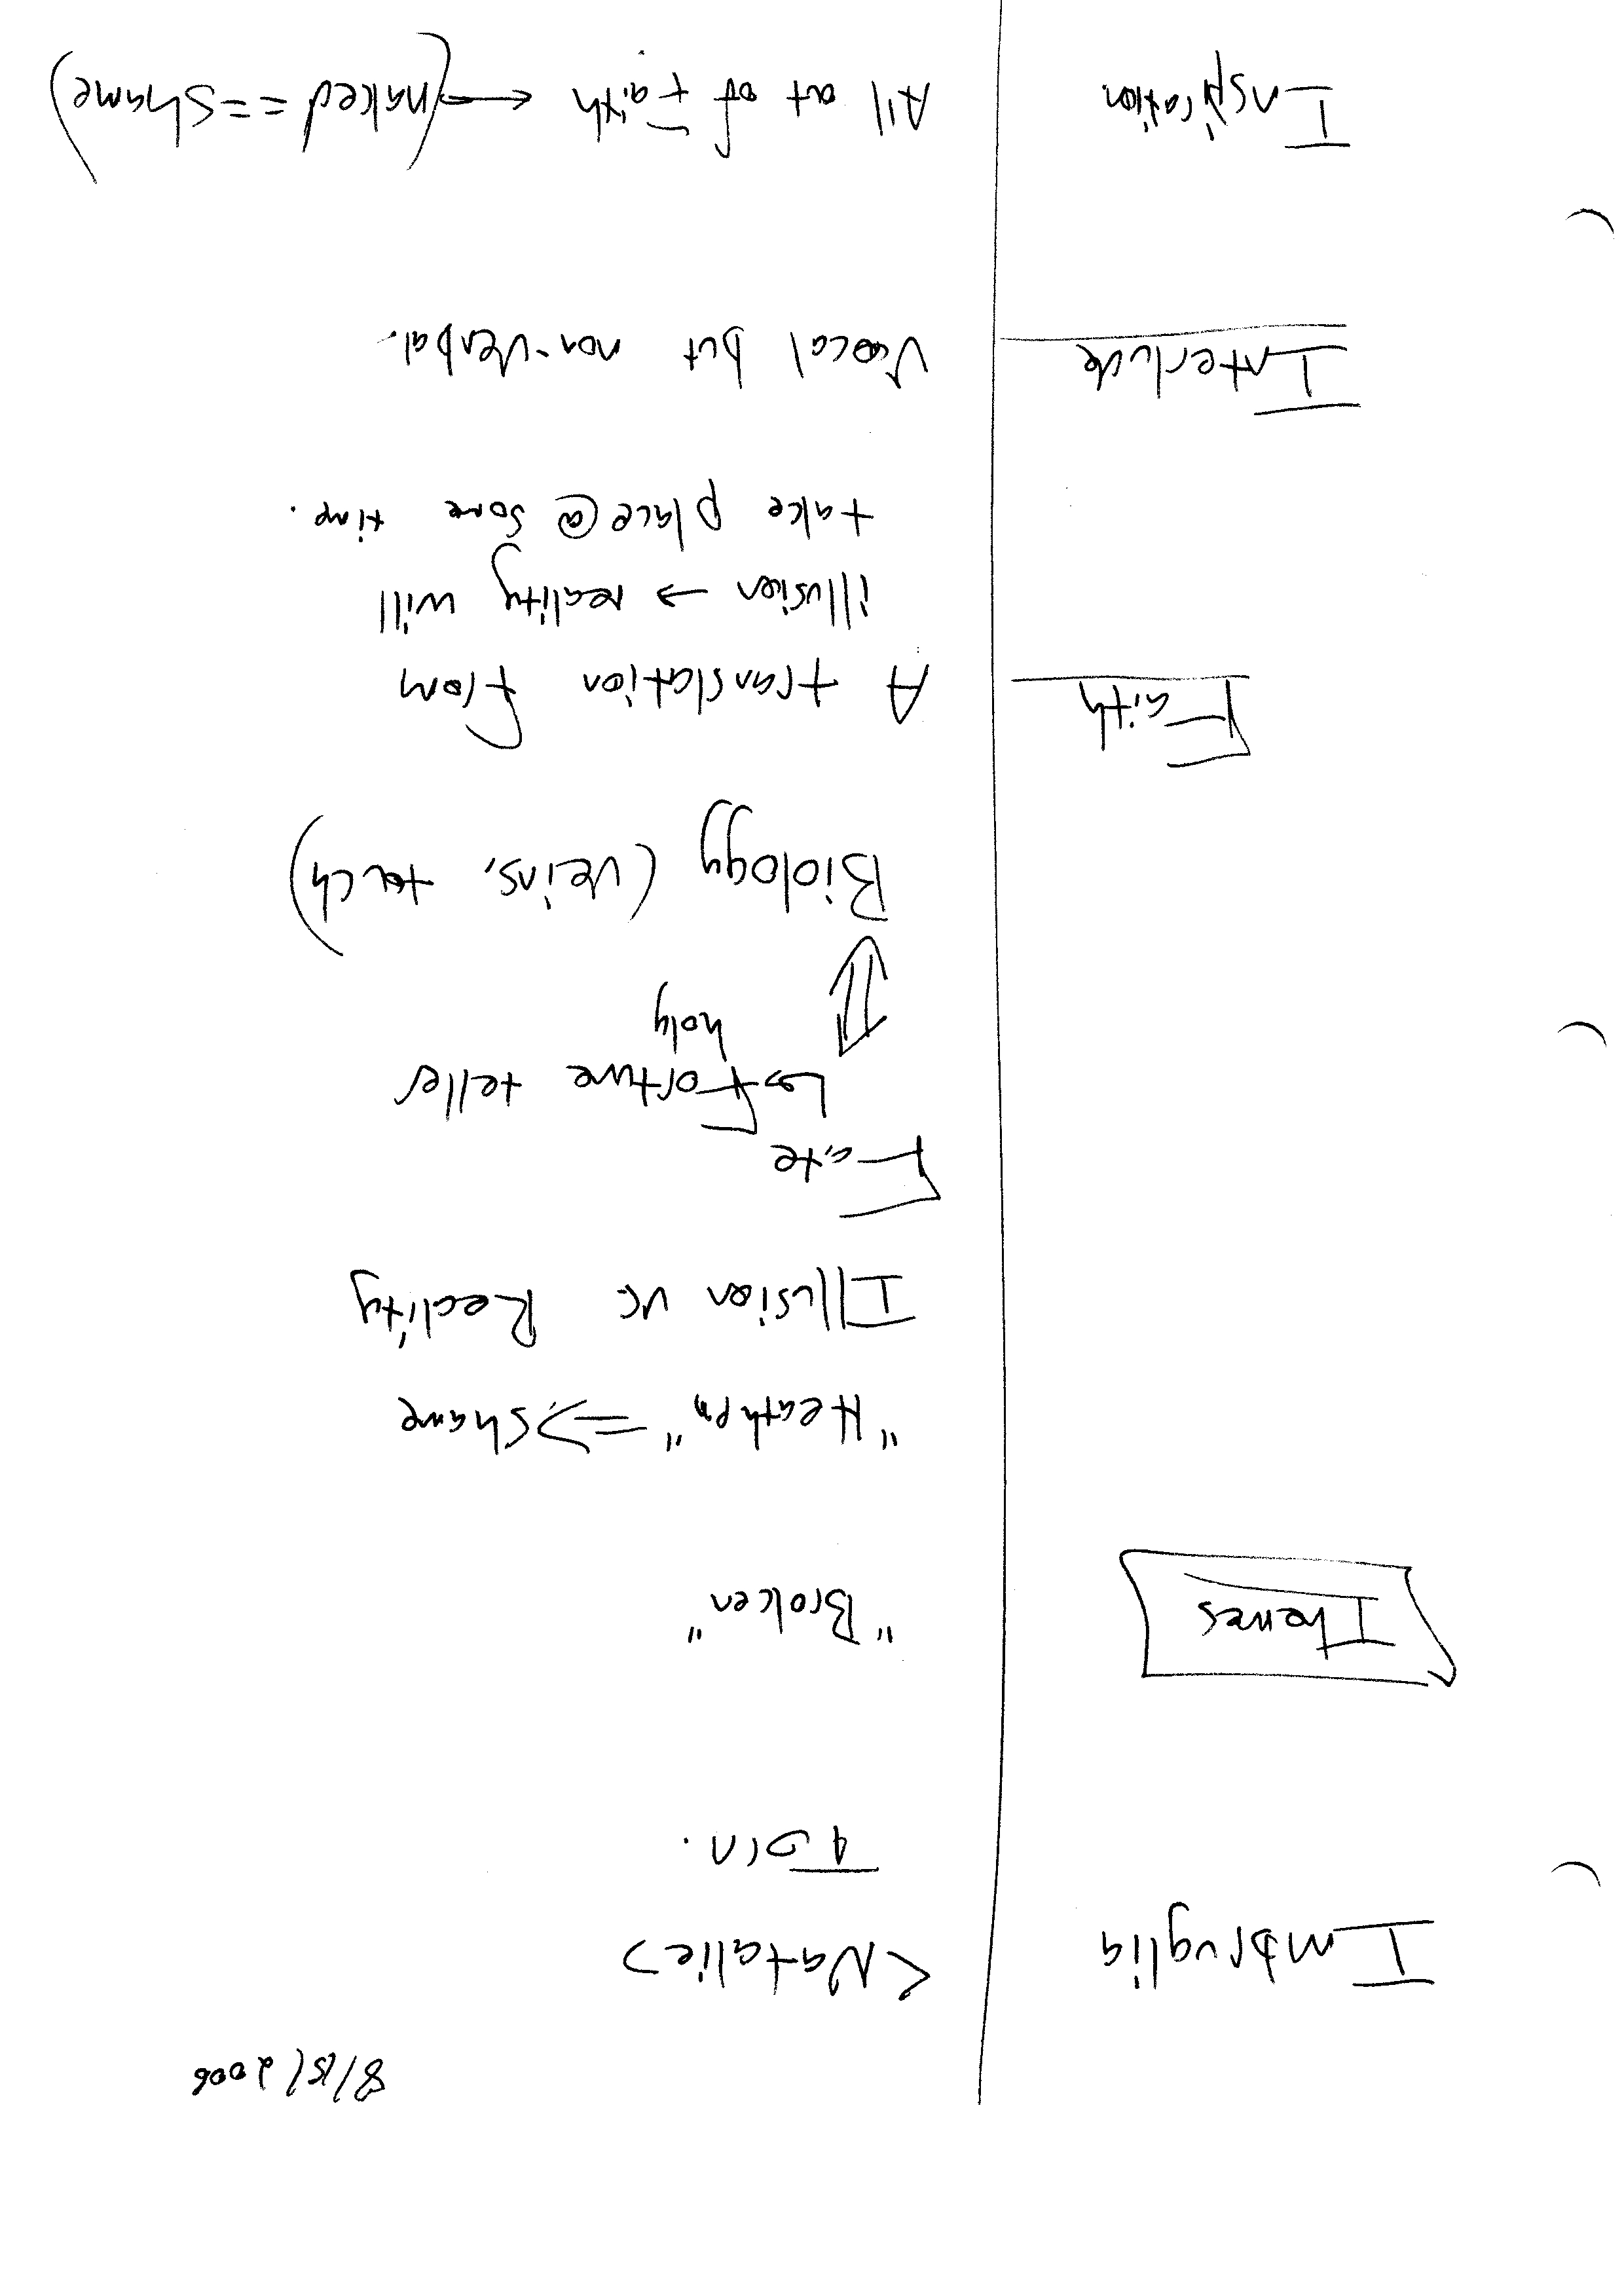 8/15/2006
Imbruglia <Natalie>
Torn.
Themes "Broken"
"Heathen" => Shame
Illusion vs Reality
Fate
↳ Fortune teller
holy
⇕
Biology (veins, touch)
Faith A translation from
illusion → reality will
take place @ some time.
Interlude Vocal but non-verbal.
Inspiration All out of Faith ← (naked == Shame)